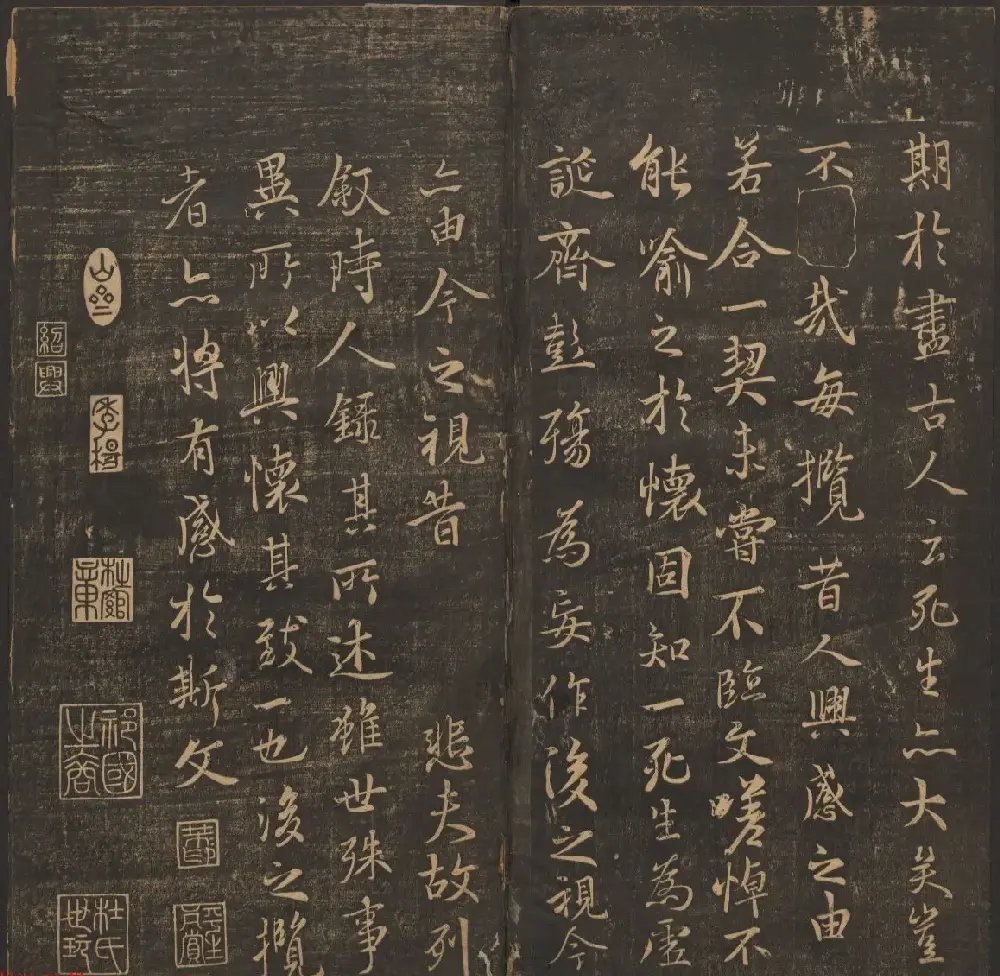 期於盡古人云死生亦大矣豈
不哉每攬昔人興感之由
若合一契未嘗不臨文嗟悼不
能喻之於懷固知一死生為虛
誕齊彭殤為妄作後之視今
亦由今之視昔 悲夫故列
敘時人錄其所述雖世殊事
異所以興懷其致一也後之攬
者亦將有感於斯文
紹興
祁國之裔